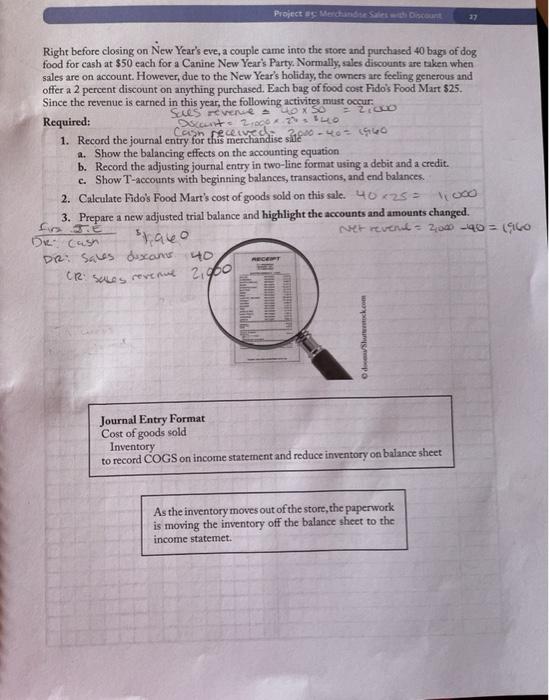 Project #5: Merchandise Sales with Discount 27
Right before closing on New Year's eve, a couple came into the store and purchased 40 bags of dog
food for cash at $50 each for a Canine New Year's Party. Normally, sales discounts are taken when
sales are on account. However, due to the New Year's holiday, the owners are feeling generous and
offer a 2 percent discount on anything purchased. Each bag of food cost Fido's Food Mart $25.
Since the revenue is earned in this year, the following activites must occur:
Sales revenue = 40 x 50 = 2,000
Required:
Discount = 2,000 x 2% = $40
Cash received = 2000 - 40 = 1960
1. Record the journal entry for this merchandise sale
a. Show the balancing effects on the accounting equation
b. Record the adjusting journal entry in two-line format using a debit and a credit.
c. Show T-accounts with beginning balances, transactions, and end balances.
2. Calculate Fido's Food Mart's cost of goods sold on this sale. 40 x 25 = 1,000
3. Prepare a new adjusted trial balance and highlight the accounts and amounts changed.
J.E
Net revenue = 2,000 - 40 = 1,960
DR: Cash $1,960
DR: Sales discount 40
CR: Sales revenue 2,000
RECEIPT
Journal Entry Format
Cost of goods sold
Inventory
to record COGS on income statement and reduce inventory on balance sheet
As the inventory moves out of the store, the paperwork
is moving the inventory off the balance sheet to the
income statemet.